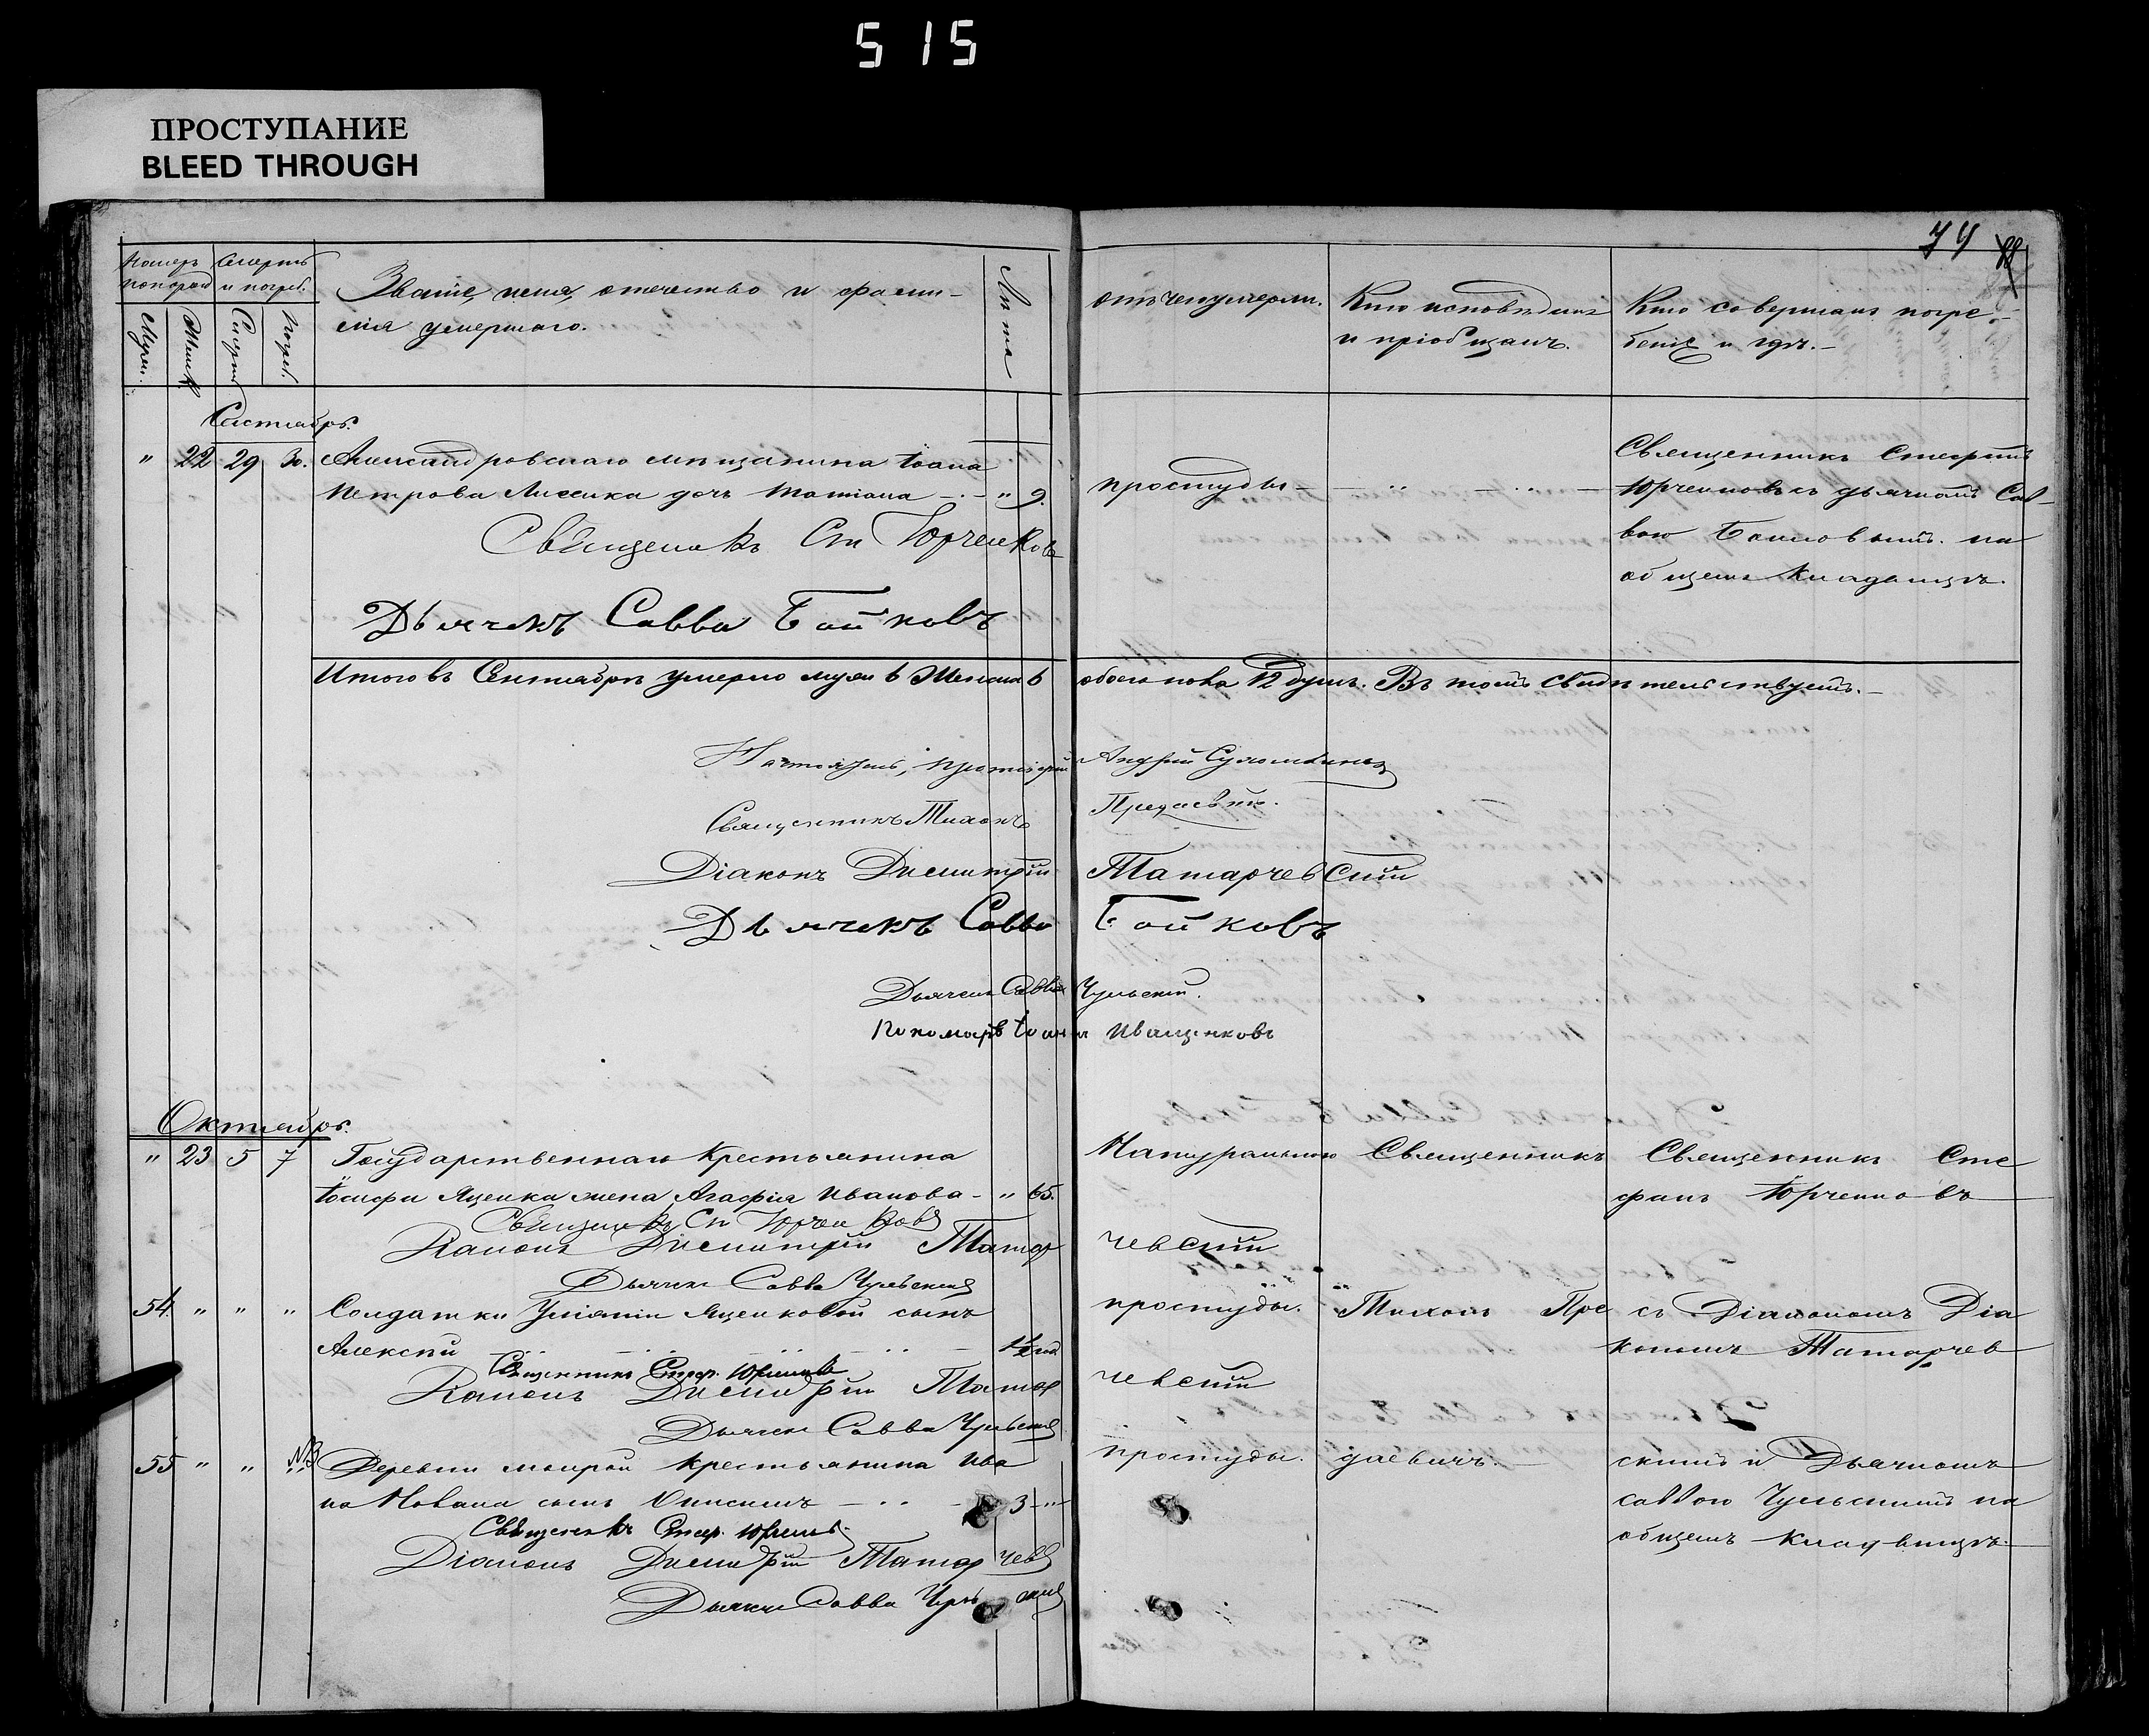 515
ПРОСТУПАНИЕ
BLEED THROUGH
74
Номеръ Смерть
и погреб.
Званіе, имя, отечество и фами-
лія умершаго.
Лѣта
Мужес.
Женск.
Смерть
Погреб.
отъ чего умерли.
Кто исповѣдалъ
и пріобщалъ.
Кто совершалъ погре-
беніе и гдѣ.-
Сентябрь.
" 22 29 30. Александровскаго мѣщанина Іоана
Петрова Лисенка дочь Татіана -.- " 9.
простуды - - " - " -
Священникъ Стефанъ
Юрченковъ съ дьячкомъ Сав-
вою Бойковымъ. на
общемъ кладбищѣ.
Священникъ Ст Юрченковъ
Дьячекъ Савва Бойковъ
Итого въ Сентябрѣ умерло муж 6 Женск 6 обоего пола 12 душъ. Въ томъ свидѣтельствуемъ.-
Настоятель, протоіерей Андрей
Священникъ Тихонъ
Діаконъ Димитрій Татарчевскій
Дьячекъ Савва Бойковъ
Дьячекъ Савва Чульскій.
Пономарь Іоаннъ Иващенковъ
Октябрь.
" 23 5 7 Государственнаго Крестьянина
Іосифа Яценка жена Агафія Иванова - " 65.
Натурально Священникъ
Священникъ Сте
фанъ Юрченковъ
Священникъ Ст Юрченковъ
Діаконъ Димитрій Татарчевскій
Дьячекъ Савва Чульскій
54. " " " Солдатки Уліяніи Яценковой сынъ
Алексѣй - .. - .. - .. - 1/2 год
простуды. Тихонъ Пре
съ Діакономъ Діа
кономъ Татарчев
Священникъ Стеф. Юрченковъ
Діаконъ Димитрій Татарчевскій
Дьячекъ Савва Чульскій
55 " " №3 Деревни Мокрой Крестьянина Ива
на сынъ - .. - 3 - "
простуды. даевичъ.-
скимъ и Дьячкомъ
Саввою Чульскимъ на
общемъ кладбищѣ.
Священникъ Стеф. Юрченковъ
Діаконъ Димитрій Татарчевскій
Дьячекъ Савва Чульскій